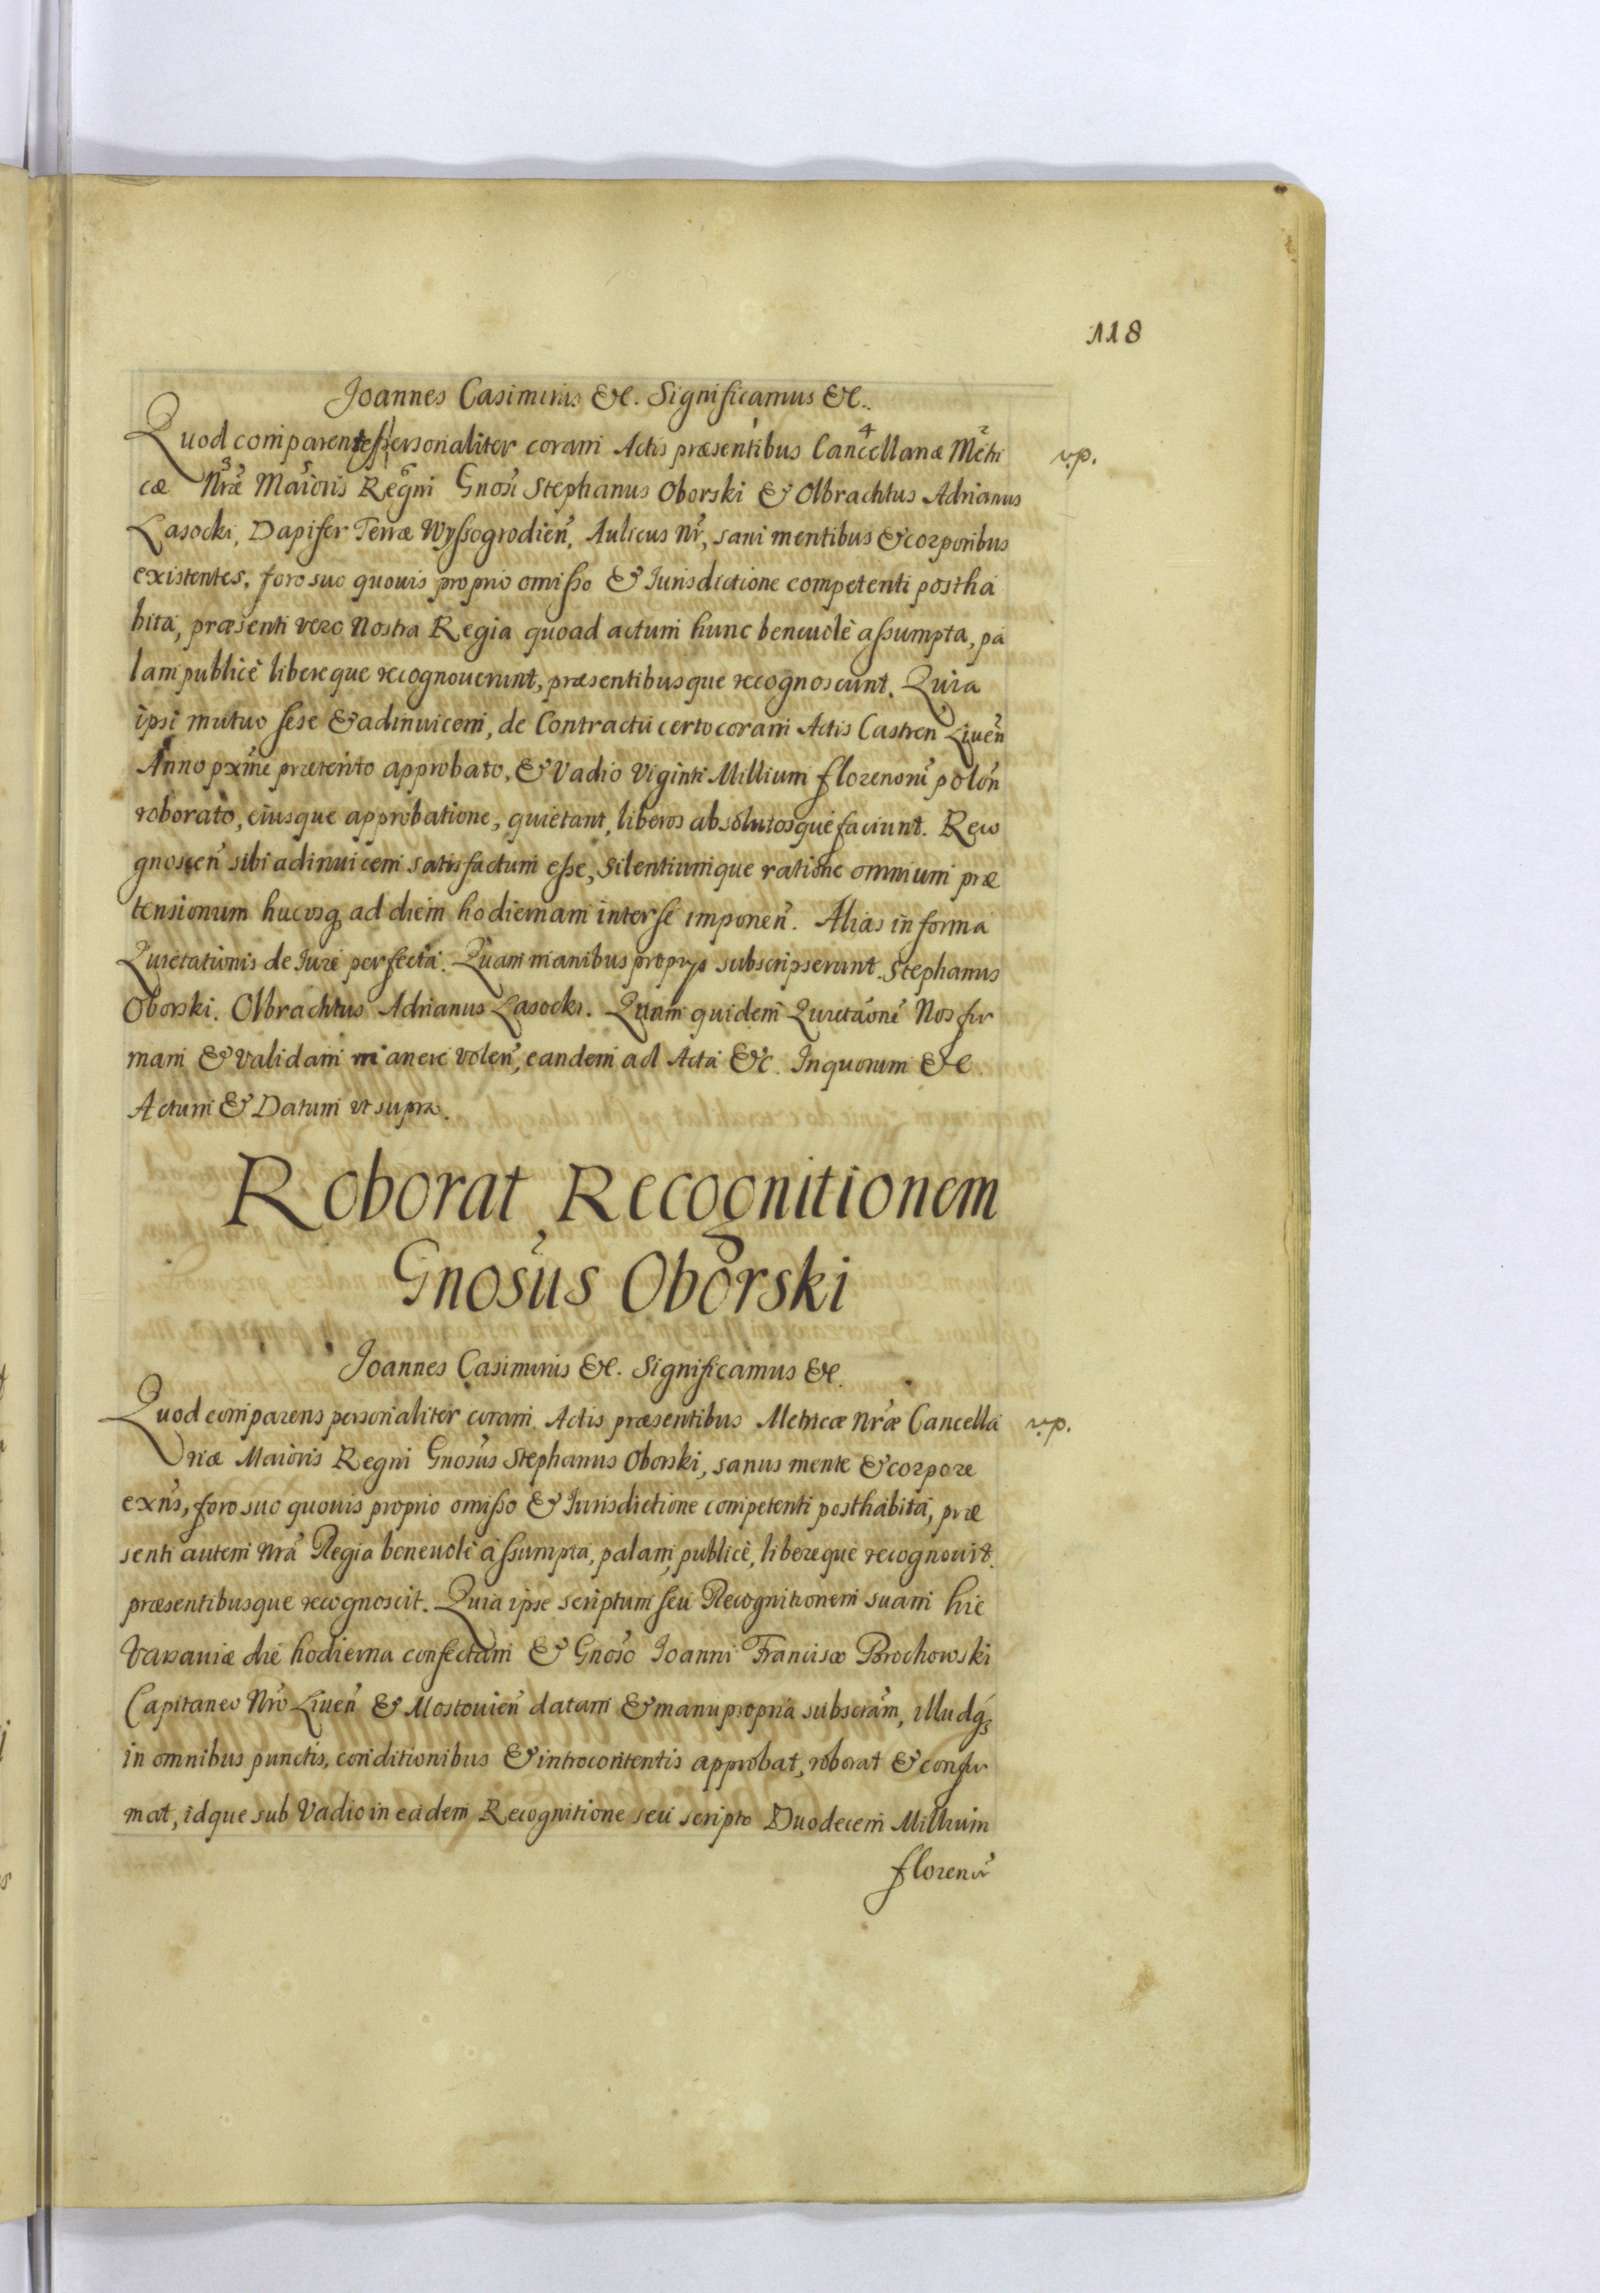 118
Joannes Casimirus &c. Significamus &c.
Quod comparentes personaliter coram Actis præsentibus Cancellariæ Metri
v.p.
cæ Nræ Maioris Regni Gnosi Stephanus Oborski & Olbrachtus Adrianus
Lasocki, Dapifer Terræ Wyssogrodien, Aulicus Nr, sani mentibus & corporibus
existentes, foro suo quouis proprio omisso & Iurisdictione competenti postha
bita, præsenti vero Nostra Regia quoad actum hunc beneuolè assumpta, pa
lam publicè libereque recognouerunt, præsentibusque recognoscunt. Quia
ipsi mutuo sese & adinuicem, de Contractu certo coram Actis Castren Liuen
Anno pxme præterito approbato, & Vadio Viginti Millium florenorum polon
roborato, eiusque approbatione, quietant, liberos absolutosque faciunt. Reco
gnoscen sibi adinuicem satisfactum esse, silentiumque ratione omnium præ
tensionum hucusq ad diem hodiernam inter se imponen. Alias in forma
Quietationis de Iure perfecta. Quam manibus proprys subscripserunt. Stephanus
Oborski. Olbrachtus Adrianus Lasocki. Quam quidem Quietaone Nos fir
mam & validam manere volen, eandem ad Acta &c. In quorum &c
Actum & Datum ut supra.
Roborat Recognitionem
Gnosus Oborski
Joannes Casimirus &c. Significamus &c.
Quod comparens personaliter coram Actis præsentibus Metricæ Nræ Cancella
v.p.
riæ Maioris Regni Gnosus Stephanus Oborski, sanus mente & corpore
exns, foro suo quouis proprio omisso & Iurisdictione competenti posthabita, præ
senti autem Nra Regia beneuolè assumpta, palam, publicè, libereque recognouit.
præsentibusque recognoscit. Quia ipse scriptum seu Recognitionem suam hic
Varsauiæ die hodierna confectam & Gnoso Joanni Francisco Brochowski
Capitaneo Nro Liuen & Mostouien datam & manu propria subscram, illudq
in omnibus punctis, conditionibus & introcontentis approbat, roborat & confir
mat, idque sub Vadio in eadem Recognitione seu scripto Duodecem Millium
floreno